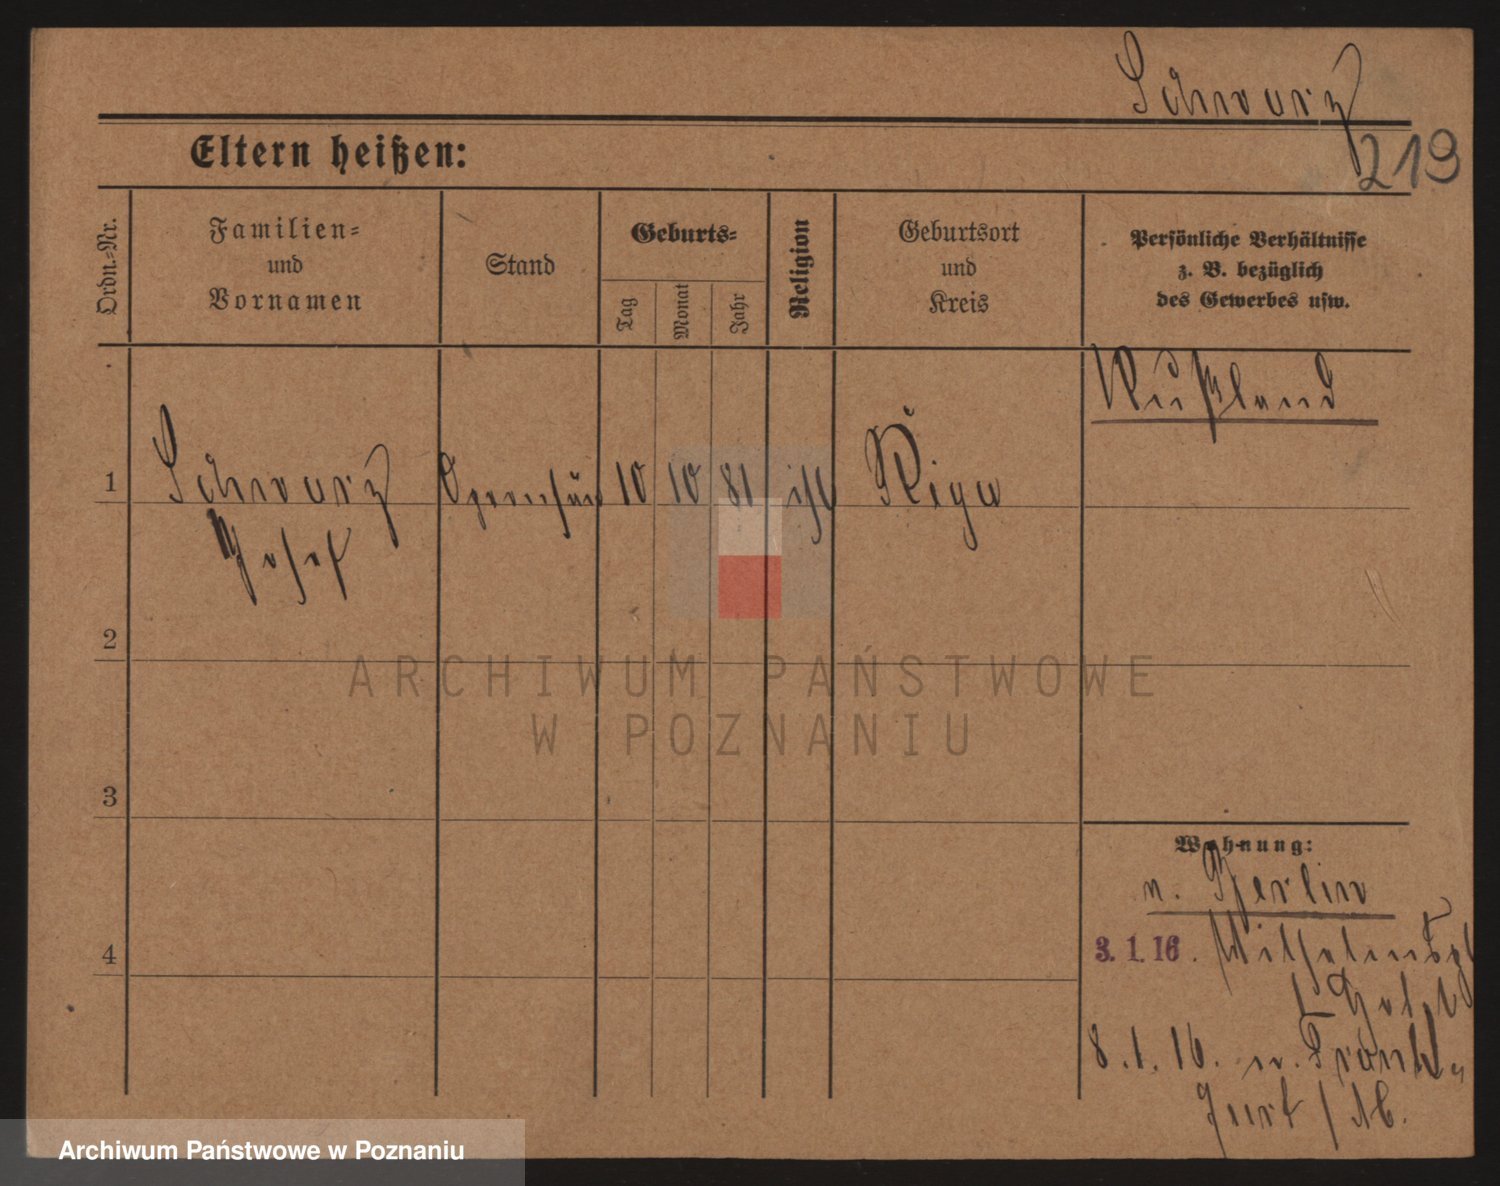 Schwarz
219
Eltern heißen:
Ordn.-Nr.
Familien-
und
Vornamen
Stand
Geburts-
Tag
Monat
Jahr
Religion
Geburtsort
und
Kreis
Persönliche Verhältnisse
z. B. bezüglich
des Gewerbes usw.
Rußland
1 Schwarz 10 10 81 isr Riga
Josef
2
3
4
ARCHIWUM PAŃSTWOWE
W POZNANIU
Wohnung:
n. Berlin
3.1.16.
8.1.16. n. Frank-
furt / M.
Archiwum Państwowe w Poznaniu